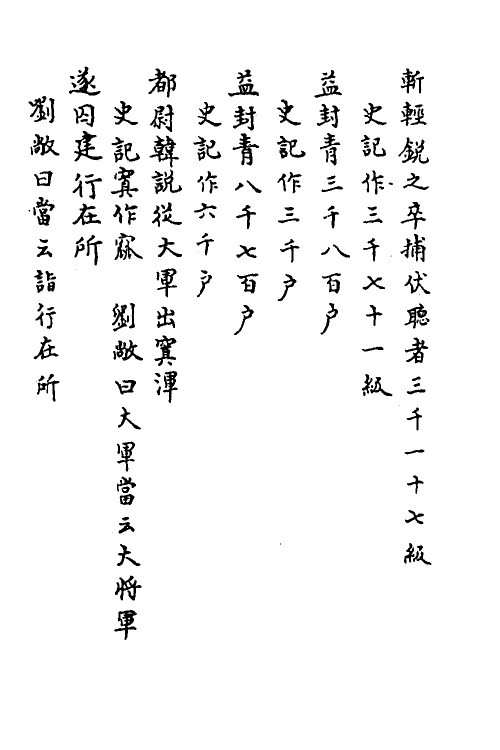 斬輕鋭之卒捕伏聴者三千一十七級
史記作三千七十一級
益封青三千八百户
史記作三千户
益封青八千七百户
史記作六千户
都尉韓説從大軍出窴渾
史記窴作窳　劉敞曰大軍當云大將軍
遂囚建行在所
劉敞曰當云詣行在所